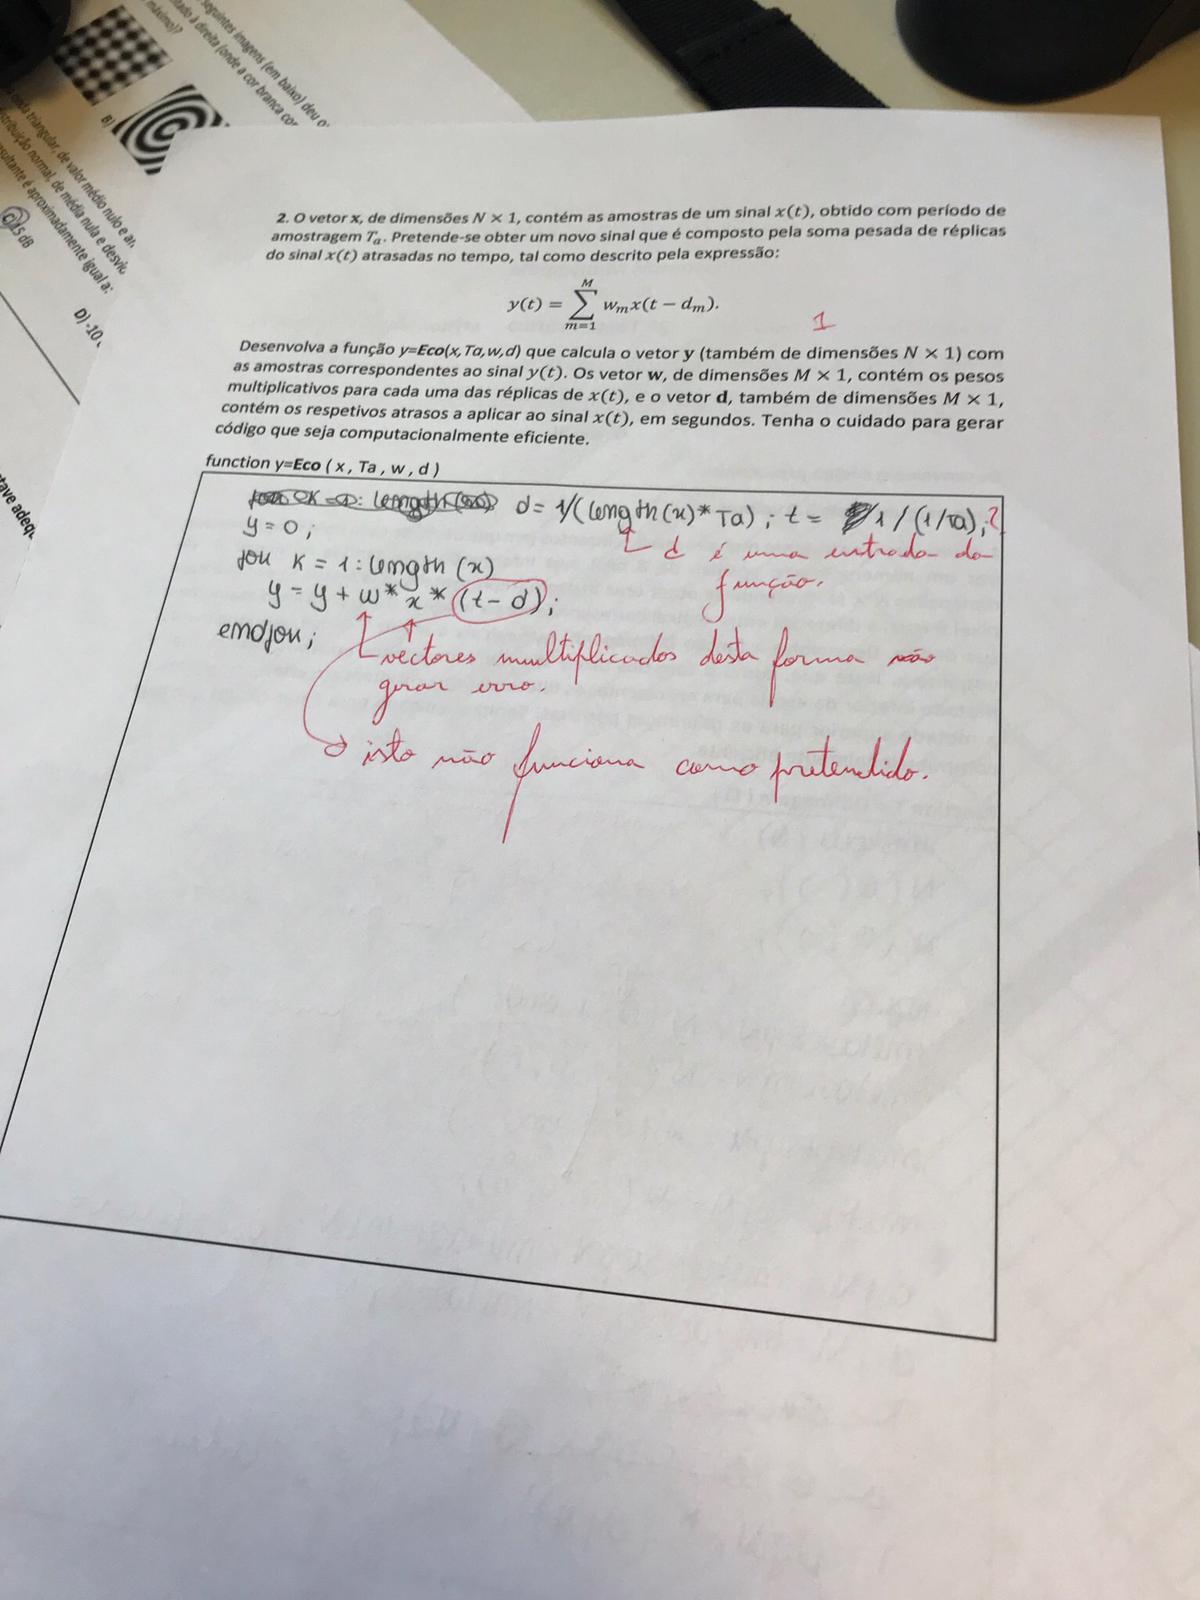 seguintes imagens (em baixo) deu o
à direita (onde a cor branca cor
máximo)?
B)
triangular, de valor médio nulo e
normal, de média nula e
é aproximadamente igual a:
C) 15 dB
D) -10
2. O vetor x, de dimensões N × 1, contém as amostras de um sinal x(t), obtido com período de
amostragem Tₐ. Pretende-se obter um novo sinal que é composto pela soma pesada de réplicas
do sinal x(t) atrasadas no tempo, tal como descrito pela expressão:
y(t) = ∑_{m=1}^{M} wₘx(t − dₘ).
1
Desenvolva a função y=Eco(x,Ta,w,d) que calcula o vetor y (também de dimensões N × 1) com
as amostras correspondentes ao sinal y(t). Os vetor w, de dimensões M × 1, contém os pesos
multiplicativos para cada uma das réplicas de x(t), e o vetor d, também de dimensões M × 1,
contém os respetivos atrasos a aplicar ao sinal x(t), em segundos. Tenha o cuidado para gerar
código que seja computacionalmente eficiente.
function y=Eco ( x , Ta , w , d )
d = 1/(length(x)* Ta) ; t = 1 / (1/Ta); ?
y = 0 ;
d é uma entrada da
função.
for K = 1 : length (x)
y = y + w* x * (t - d);
endfor;
vectores multiplicados desta forma vão
gerar erro.
isto não funciona como pretendido.